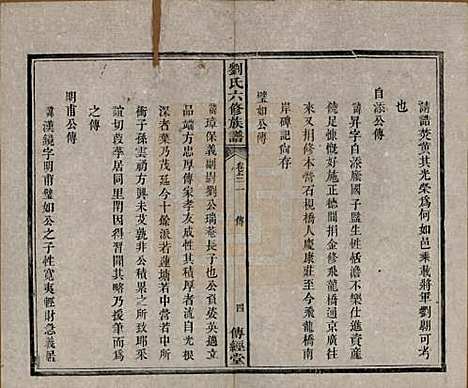 誥譜焚黃其光榮爲何如邑乘敕將軍劉朝可考
也
自添公傳
諱昇字自添廕國子監生性恬澹不樂仕進資產
德足慷慨好施正德間捐金修飛龍橋通京廣往
來又捐修本營石梘橋人慶康莊至今飛龍橋南
岸碑記尚存
劉氏六修族譜
卷之二
傳
四
傳經堂
璧如公傳
諱璋保義副尉劉公瑞菴長子也公負姿英邁立
品端方忠厚傳家孝友成性其積厚者流自光根
深者葉乃茂延今十餘派若蓮塘若中營若中所
衛子孫雲礽方興未艾孰非公積累之所致耶采
誼切葭莩居同里閈因得習聞其略乃援筆而爲
之傳
明甫公傳
諱漢鏡字明甫璧如公之子性寬夷輕財急義嚴